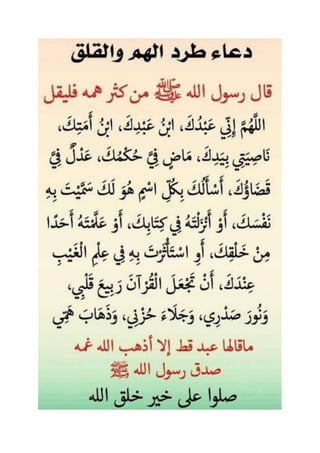 دعاء طرد الهم والقلق
قال رسول الله ﷺ من كثر همه فليقل
اللَّهُمَّ إِنِّي عَبْدُكَ، ابْنُ عَبْدِكَ، ابْنُ أَمَتِكَ،
نَاصِيَتِي بِيَدِكَ، مَاضٍ فِيَّ حُكْمُكَ، عَدْلٌ فِيَّ
قَضَاؤُكَ، أَسْأَلُكَ بِكُلِّ اسْمٍ هُوَ لَكَ سَمَّيْتَ بِهِ
نَفْسَكَ، أَوْ أَنْزَلْتَهُ فِي كِتَابِكَ، أَوْ عَلَّمْتَهُ أَحَدًا
مِنْ خَلْقِكَ، أَوِ اسْتَأْثَرْتَ بِهِ فِي عِلْمِ الْغَيْبِ
عِنْدَكَ، أَنْ تَجْعَلَ الْقُرْآنَ رَبِيعَ قَلْبِي،
وَنُورَ صَدْرِي، وَجَلَاءَ حُزْنِي، وَذَهَابَ هَمِّي
ماقالها عبد قط إلا أذهب الله غمه
صدق رسول الله ﷺ
صلوا على خير خلق الله